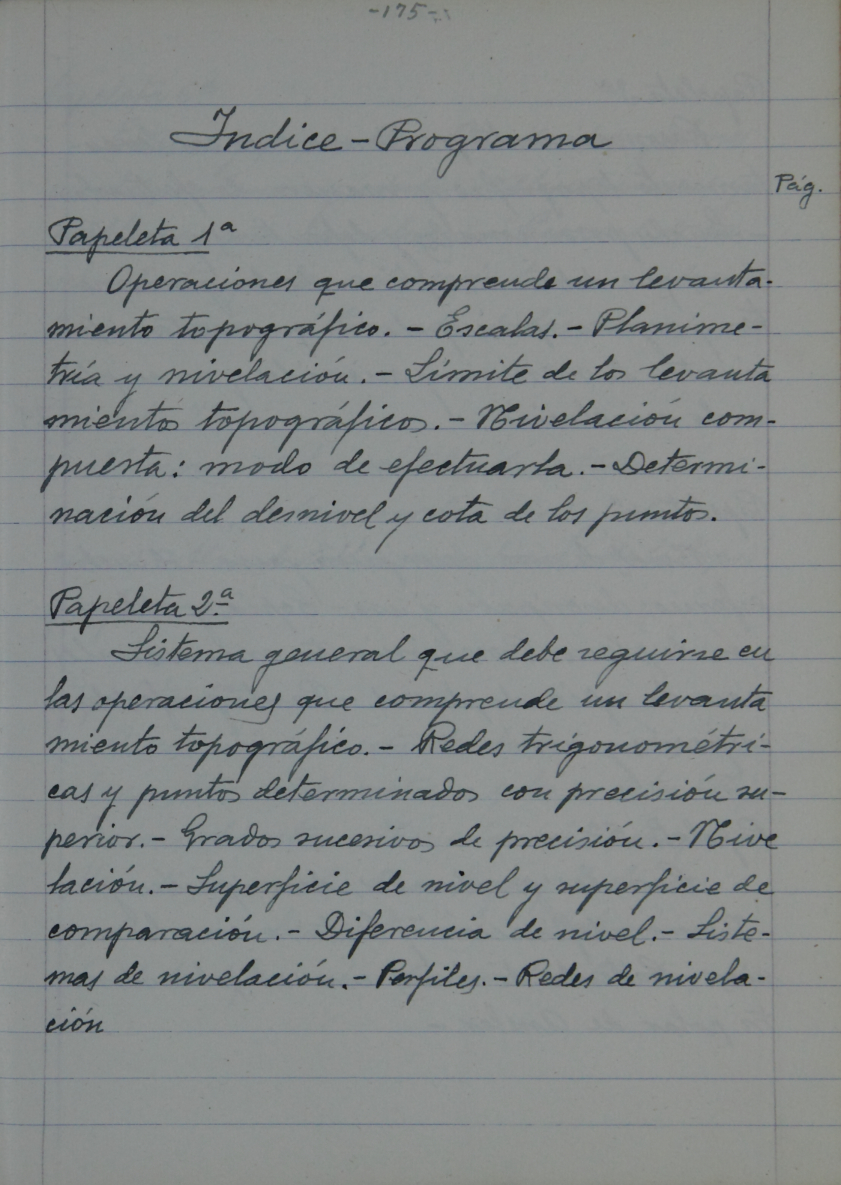 -175-
Indice-Programa
Pág.
Papeleta 1ª
Operaciones que comprende un levanta-
miento topográfico. - Escalas. - Planime-
tría y nivelación. - Límite de los levanta
mientos topográficos. - Nivelación com-
puesta: modo de efectuarla. - Determi-
nación del desnivel y cota de los puntos.
Papeleta 2ª
Sistema general que debe seguirse en
las operaciones que comprende un levanta
miento topográfico. - Redes trigonométri-
cas y puntos determinados con precisión su-
perior. - Grados sucesivos de precisión. - Nive
lación. - Superficie de nivel y superficie de
comparación. - Diferencia de nivel. - Siste-
mas de nivelación. - Perfiles. - Redes de nivela-
ción